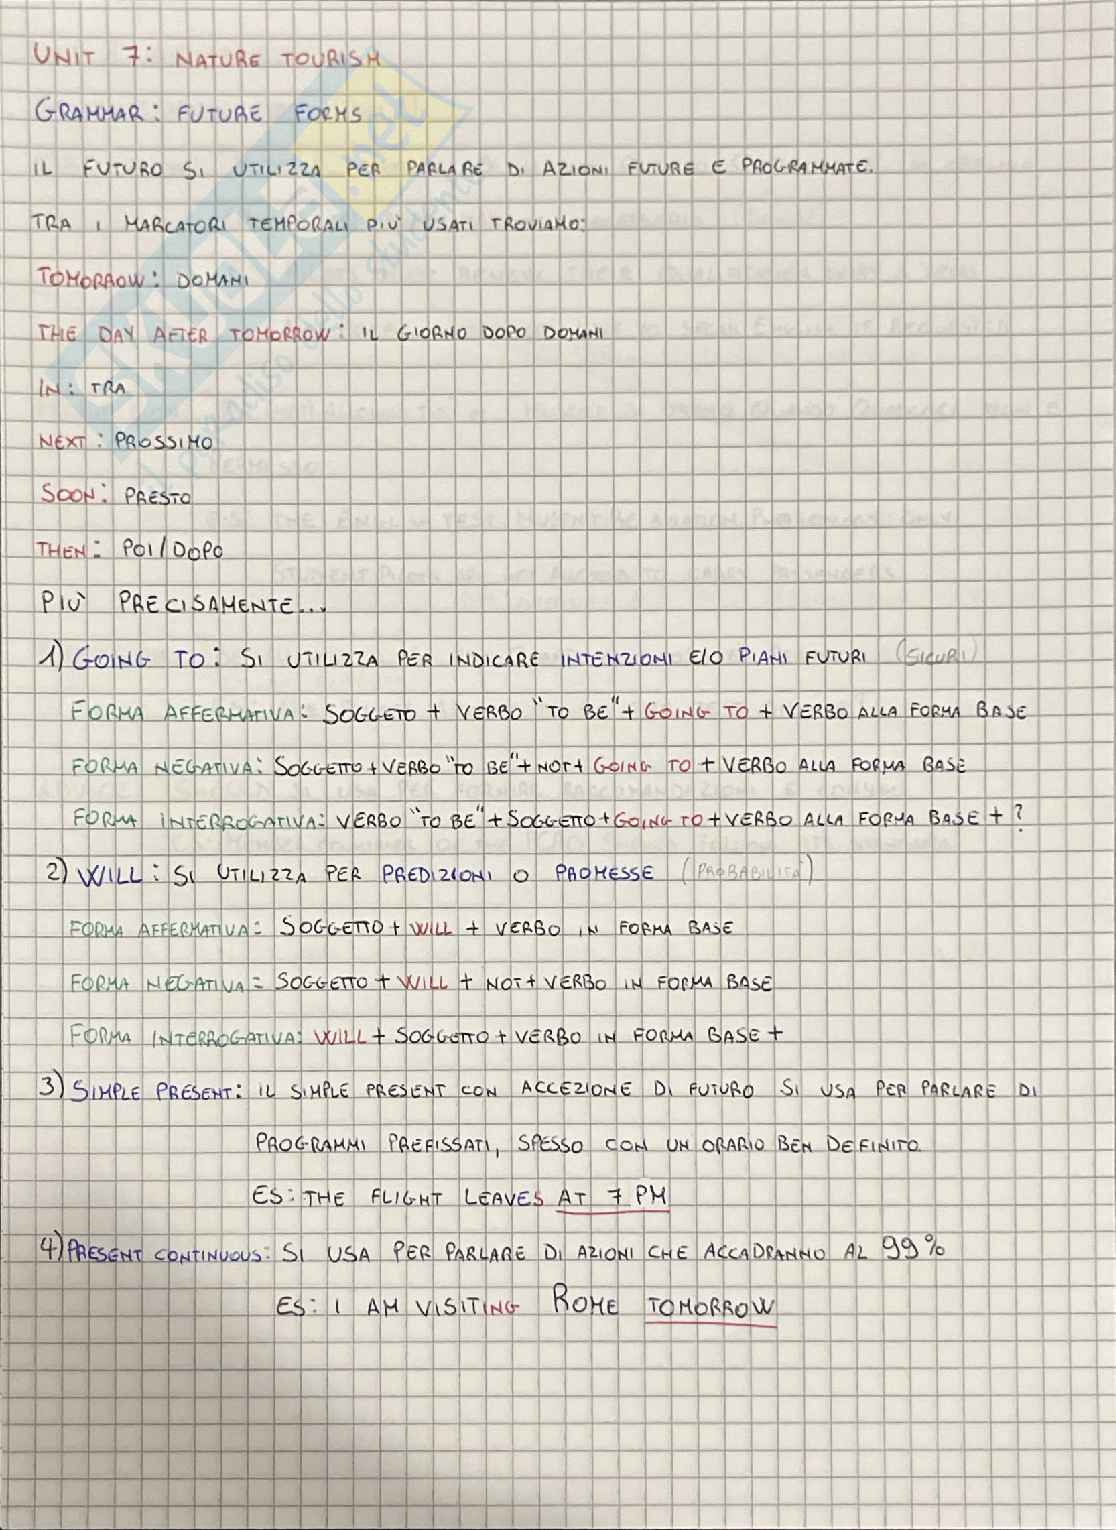 UNIT 7: NATURE TOURISM
GRAMMAR: FUTURE FORMS
IL FUTURO SI UTILIZZA PER PARLARE DI AZIONI FUTURE E PROGRAMMATE.
TRA I MARCATORI TEMPORALI PIÙ USATI TROVIAMO:
TOMORROW: DOMANI
THE DAY AFTER TOMORROW: IL GIORNO DOPO DOMANI
IN: TRA
NEXT: PROSSIMO
SOON: PRESTO
THEN: POI/DOPO
PIÙ PRECISAMENTE...
1) GOING TO: SI UTILIZZA PER INDICARE INTENZIONI E/O PIANI FUTURI (SICURI)
FORMA AFFERMATIVA: SOGGETO + VERBO "TO BE" + GOING TO + VERBO ALLA FORMA BASE
FORMA NEGATIVA: SOGGETTO + VERBO "TO BE" + NOT + GOING TO + VERBO ALLA FORMA BASE
FORMA INTERROGATIVA: VERBO "TO BE" + SOGGETTO + GOING TO + VERBO ALLA FORMA BASE + ?
2) WILL: SI UTILIZZA PER PREDIZIONI O PROMESSE (PROBABILITÀ)
FORMA AFFERMATIVA: SOGGETTO + WILL + VERBO IN FORMA BASE
FORMA NEGATIVA: SOGGETTO + WILL + NOT + VERBO IN FORMA BASE
FORMA INTERROGATIVA: WILL + SOGGETTO + VERBO IN FORMA BASE +
3) SIMPLE PRESENT: IL SIMPLE PRESENT CON ACCEZIONE DI FUTURO SI USA PER PARLARE DI
PROGRAMMI PREFISSATI, SPESSO CON UN ORARIO BEN DEFINITO.
ES: THE FLIGHT LEAVES AT 7 PM
4) PRESENT CONTINUOUS: SI USA PER PARLARE DI AZIONI CHE ACCADRANNO AL 99%
ES: I AM VISITING ROME TOMORROW
SKUOLA.net
il paradiso dello studente